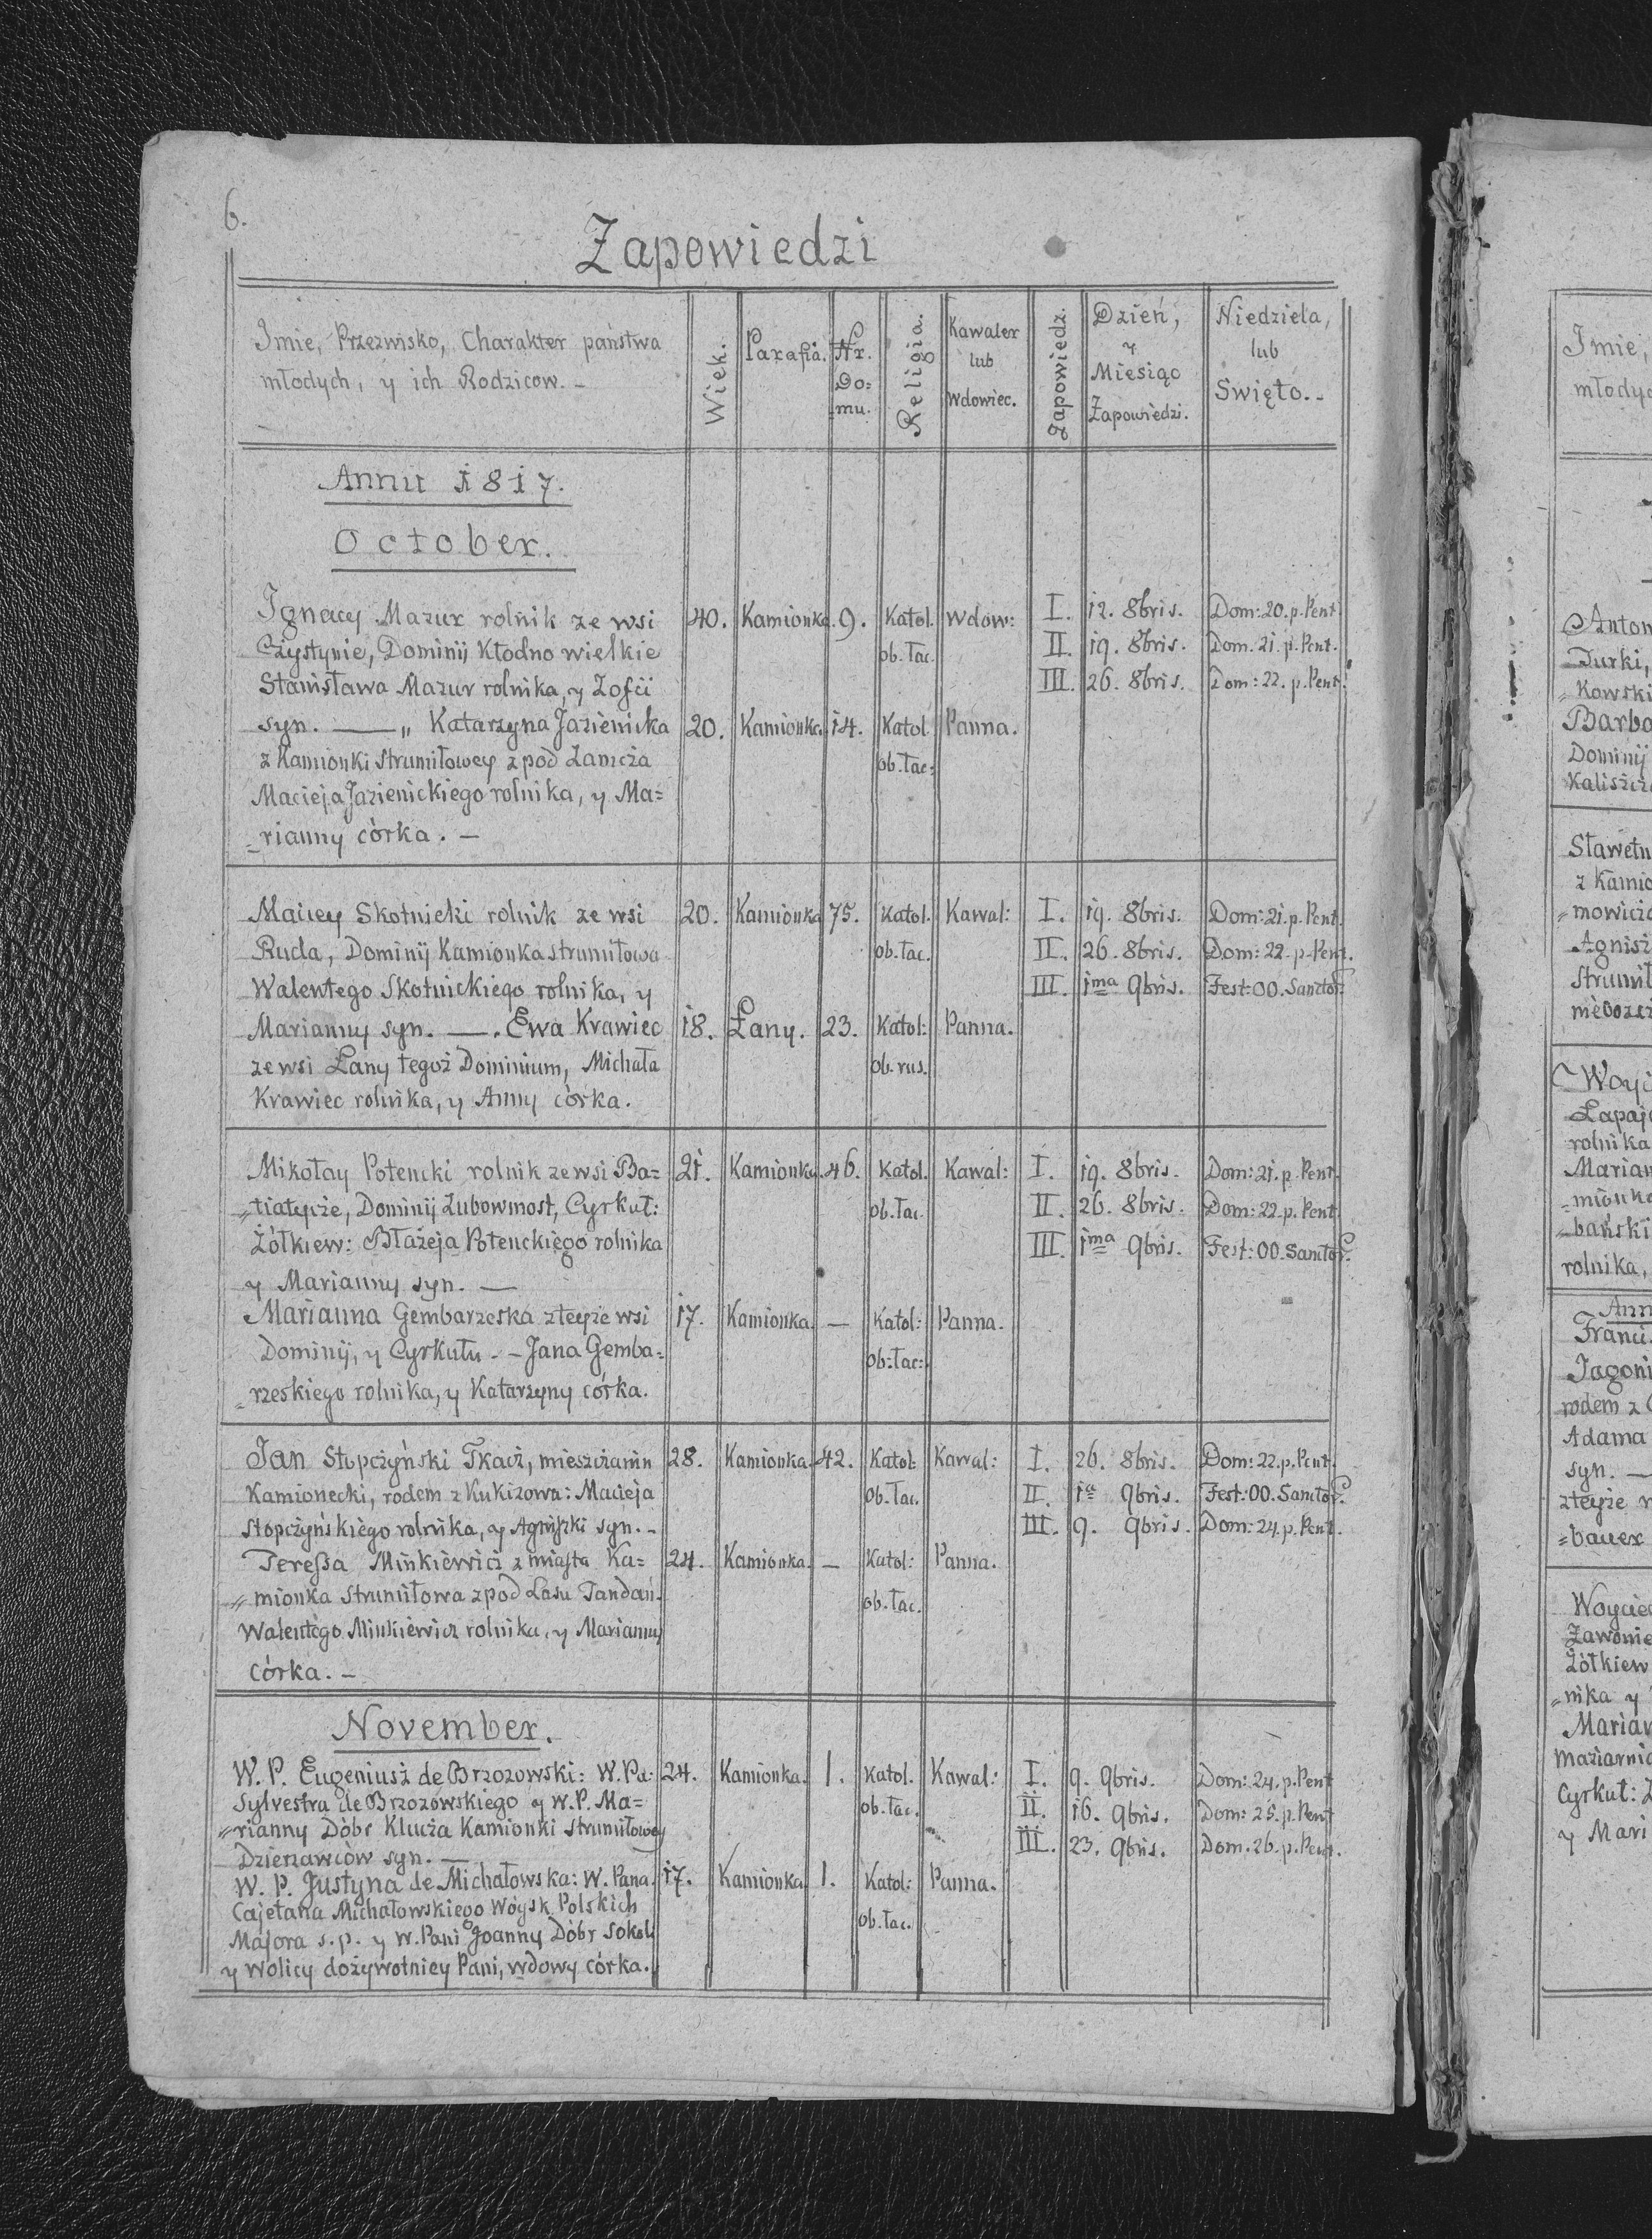 6.
Zapowiedzi
Imie, Przezwisko, Charakter państwa
młodych, y ich Rodzicow. -
Wiek.
Parafia.
Nr.
Do=
mu.
Religia.
Kawaler
lub
Wdowiec.
Zapowiedz.
Dzień,
y
Miesiąc
Zapowiedzi.
Niedziela,
lub
Swięto. -
Anno 1817.
October.
Ignacy Mazur rolnik ze wsi 40. Kamionka. 9. Katol. Wdow: I. 12. 8bris. Dom: 20. p. Pent
Czystynie, Dominij Kłodno wielkie ob. łac. II. 19. 8bris. Dom. 21. p. Pent.
Stanisława Mazur rolnika, y Zofii III. 26. 8bris. Dom: 22. p. Pent.
syn. — „ Katarzyna Jazienicka 20. Kamionka. 14. Katol Panna.
z Kamionki Strumiłowey z pod ob. łac:
Macieja Jazienickiego rolnika, y Ma=
=rianny córka. —
Maciey Skotnicki rolnik ze wsi 20. Kamionka 75. Katol. Kawal: I. 19. 8bris. Dom: 21. p. Pent.
Ruda, Dominij Kamionka strumiłowa ob. łac. II. 26. 8bris. Dom: 22. p. Pent.
Walentego Skotnickiego rolnika, y III. 1ma 9bris. Fest: OO. Sanctor.
Marianny syn. —. Ewa Krawiec 18. Łany. 23. Katol: Panna.
ze wsi Łany tegoż Dominium, Michała ob. rus.
Krawiec rolnika, y Anny córka.
Mikołay Potencki rolnik ze wsi Ba= 21. Kamionka. 46. Katol. Kawal: I. 19. 8bris. Dom: 21. p. Pent.
=tiatycze, Dominij Zubowmost, Cyrkuł: ob. łac. II. 26. 8bris. Dom: 22. p. Pent.
Żółkiew: Błażeja Potenckiego rolnika III. 1ma 9bris. Fest: OO. Sanctor.
y Marianny syn. —
Marianna Gembarzeska z teyże wsi 17. Kamionka. — Katol: Panna.
Dominij, y Cyrkułu. - Jana Gemba= ob: łac:
=rzeskiego rolnika, y Katarzyny córka.
Jan Stopczyński Tkacz, mieszczanin 28. Kamionka. 42. Katol: Kawal: I. 26. 8bris. Dom: 22. p. Pent.
Kamionecki, rodem z Kukizowa: Macieja ob. łac. II. 1a 9bris. Fest: OO. Sanctor.
Stopczyńskiego rolnika, y Agniszki syn. - III. 9. 9bris. Dom: 24. p. Pent.
Tereßa Minkiewicz z miasta Ka= 24. Kamionka. — Katol: Panna.
=mionka Strumiłowa z pod Lasu Tandań. ob. łac.
Walentego Minkiewicz rolnika, y Marianny
córka. -
November.
W. P. Eugeniusz de Brzozowski: W. Pa: 24. Kamionka. 1. Katol. Kawal: I. 9. 9bris. Dom: 24. p. Pent
Sylvestra de Brzozowskiego y W. P. Ma= ob. łac. II. 16. 9bris. Dom: 25. p. Pent
=rianny Dóbr Klucza Kamionki Strumiłowey III. 23. 9bris. Dom. 26. p. Pent.
Dzierzawców syn. —
W. P. Justyna de Michałowska: W. Pana. 17. Kamionka 1. Katol: Panna.
Cajetana Michałowskiego Wóysk Polskich ob. łac.
Majora s. p. y W. Pani Joanny Dóbr Sokola
y Wolicy dożywotniey Pani, wdowy córka.
Imie,
młodyc
Anton
Turki,
=Kowski
Barba
Dominij
Kaliszcz
Sławetn
z Kamio
=mowicza
Agnisz
Strumił
Woyci
Łapaj
rolnika
Marian
=mionka
=bański
rolnika,
Ann
Franci
Jagoni
rodem z
Adama
syn. —
z teyże
=bauer
Woyciec
Zawonie
Żółkiew
=nika y
Marian
Cyrkuł:
y Mari